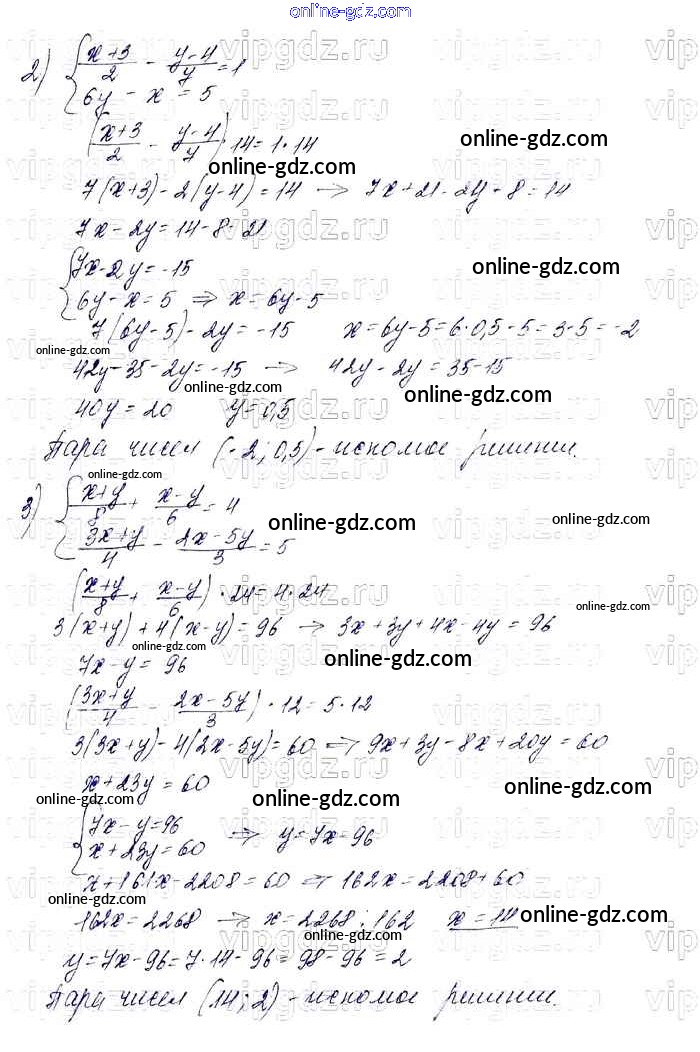 online-gdz.com
2) { (x+3)/2 - (y-4)/7 = 1
6y - x = 5
( (x+3)/2 - (y-4)/7 ) · 14 = 1 · 14
online-gdz.com
online-gdz.com
7(x+3) - 2(y-4) = 14 → 7x + 21 - 2y + 8 = 14
7x - 2y = 14 - 8 - 21
{ 7x - 2y = -15
online-gdz.com
6y - x = 5 ⇒ x = 6y - 5
7(6y-5) - 2y = -15 x = 6y - 5 = 6 · 0,5 - 5 = 3 - 5 = -2
online-gdz.com
42y - 35 - 2y = -15 → 42y - 2y = 35 - 15
online-gdz.com
online-gdz.com
40y = 20 y = 0,5
Пара чисел (-2; 0,5) - искомое решение.
online-gdz.com
3) { (x+y)/8 + (x-y)/6 = 4
online-gdz.com
online-gdz.com
(3x+y)/4 - (2x-5y)/3 = 5
( (x+y)/8 + (x-y)/6 ) · 24 = 4 · 24
online-gdz.com
3(x+y) + 4(x-y) = 96 → 3x + 3y + 4x - 4y = 96
online-gdz.com
online-gdz.com
7x - y = 96
( (3x+y)/4 - (2x-5y)/3 ) · 12 = 5 · 12
3(3x+y) - 4(2x-5y) = 60 ⇒ 9x + 3y - 8x + 20y = 60
x + 23y = 60
online-gdz.com
online-gdz.com
online-gdz.com
{ 7x - y = 96 ⇒ y = 7x - 96
x + 23y = 60
x + 161x - 2208 = 60 ⇒ 162x = 2208 + 60
online-gdz.com
162x = 2268 → x = 2268 : 162 x = 14
online-gdz.com
online-gdz.com
y = 7x - 96 = 7 · 14 - 96 = 98 - 96 = 2
Пара чисел (14; 2) - искомое решение.
vipgdz.ru